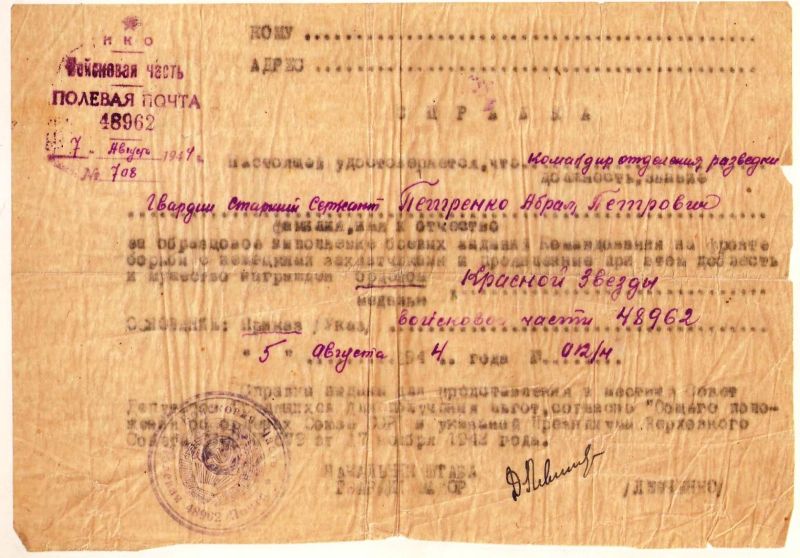 НКО
Войсковая часть
ПОЛЕВАЯ ПОЧТА
48962
7 - Августа 1944 г.
№ 708
КОМУ
АДРЕС
СПРАВКА
Настоящей удостоверяется, что Командир отделения, разведки
должность, звание
Гвардии Старший Сержант Петренко Абрам, Петрович
фамилия, имя и отчество
за образцовое выполнение боевых заданий Командования на фронте
борьбы с немецкими захватчиками и проявленные при этом доблесть
и мужество награжден орденом Красной Звезды
медалью
Основание: Приказ /Указ, войсковой части 48962
"5" августа 194 4 . года № 012/н
Справка выдана для представления в местный Совет
Депутатов Трудящихся для получения льгот, согласно "Общего поло-
жения об орденах Союза ССР" и указаний Президиума Верховного
от 17 ноября 1942 года.
НАЧАЛЬНИК ШТАБА
МАЙОР
48962